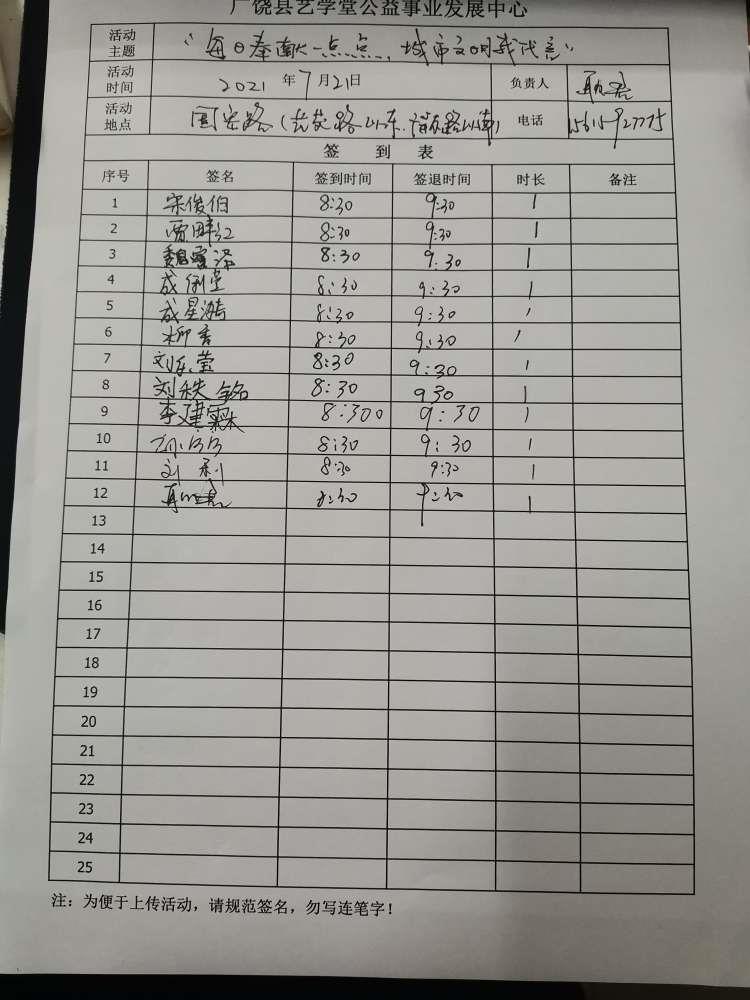 广饶县艺学堂公益事业发展中心
活动主题 “每日奉献一点点，城市文明我代言”
活动时间 2021 年 7 月 21 日 负责人
活动地点 电话
签 到 表
序号 签名 签到时间 签退时间 时长 备注
1 宋俊伯 8:30 9:30 1
2 8:30 9:30 1
3 8:30 9:30 1
4 8:30 9:30 1
5 8:30 9:30 1
6 柳青 8:30 9:30 1
7 刘东莹 8:30 9:30 1
8 刘秩铭 8:30 930 1
9 李建霖 8:300 9:30 1
10 8:30 9:30 1
11 刘利 8:30 9:30 1
12 8:30 9:30 1
13
14
15
16
17
18
19
20
21
22
23
24
25
注：为便于上传活动，请规范签名，勿写连笔字！